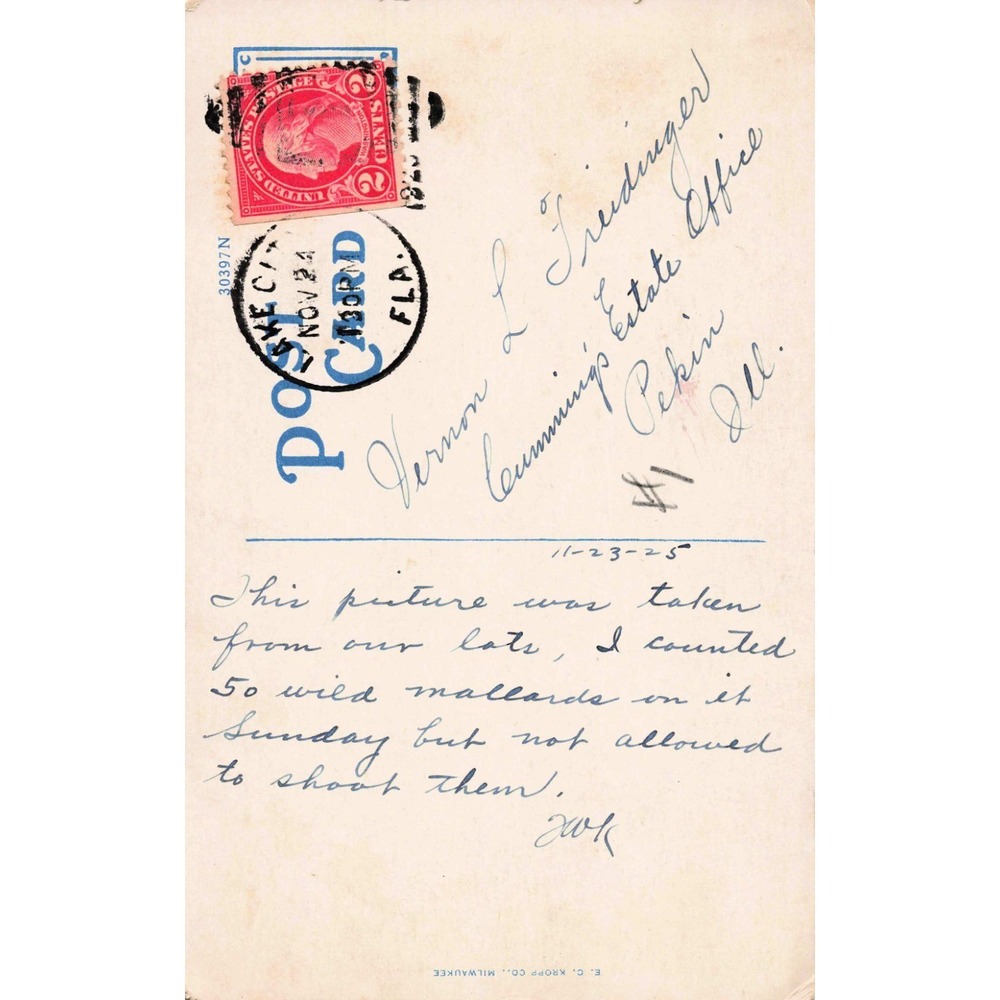 UNITED STATES POSTAGE
2 CENTS 2
LAKE CITY
NOV 24
130 PM
FLA.
1925
30397N
POST CARD
Vernon L Freidinger
Cummings Estate Office
Pekin
Ill.
#1
11-23-25
This picture was taken
from our lots, I counted
50 wild mallards on it
Sunday but not allowed
to shoot them.
E. C. KROPP CO., MILWAUKEE